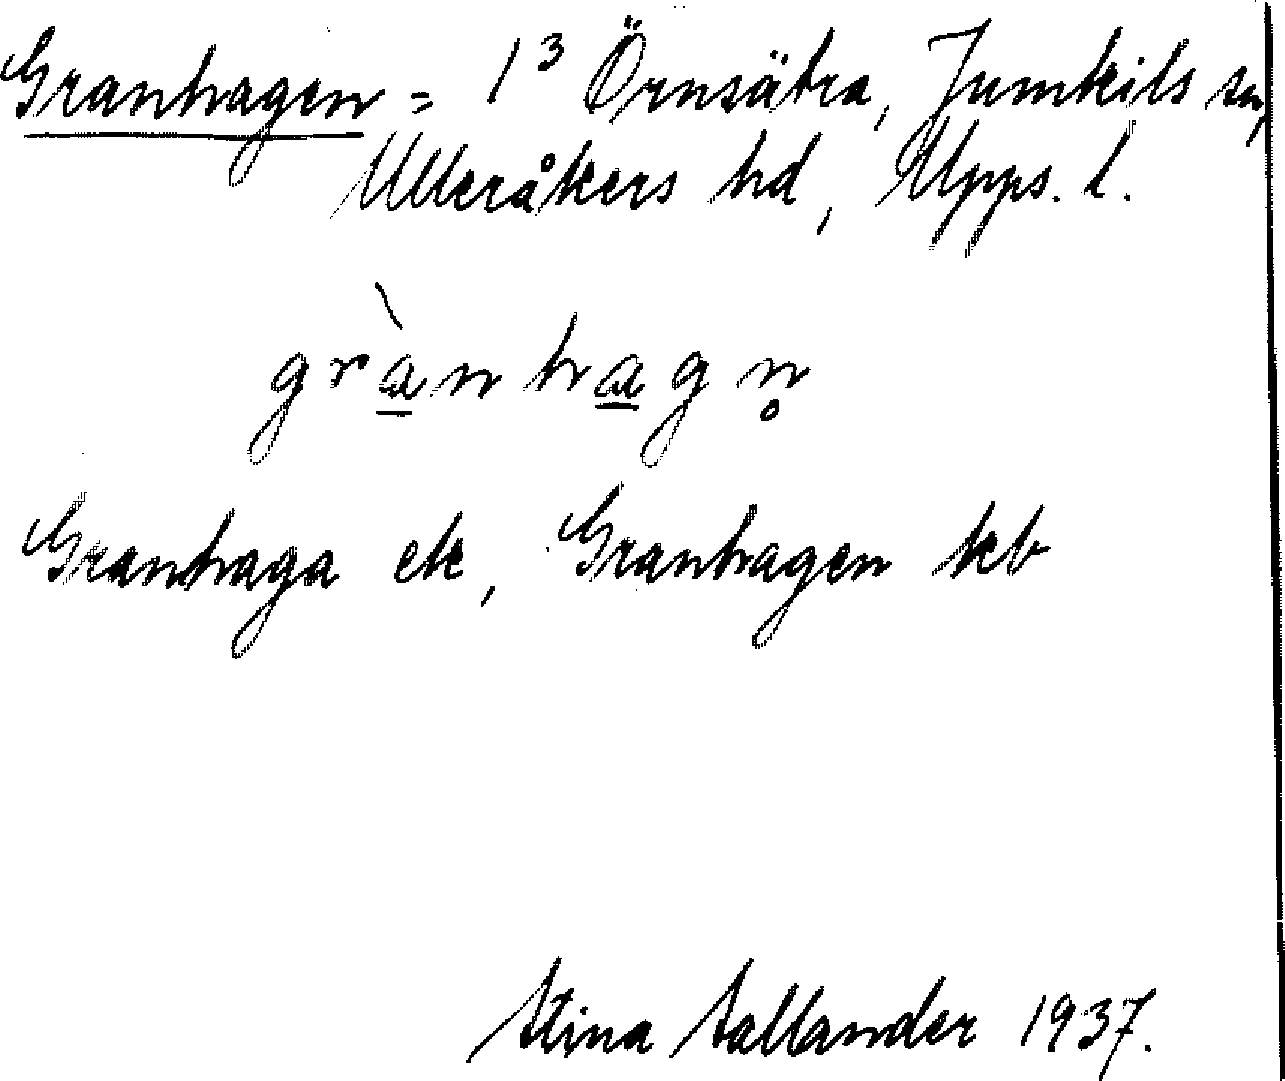 Granhagen = 1³ Örnsätra, Jumkils sn,
Ulleråkers hd, Upps. l.
grànhagn̥
Granhaga ek, Granhagen kb
Stina Sallander 1937.